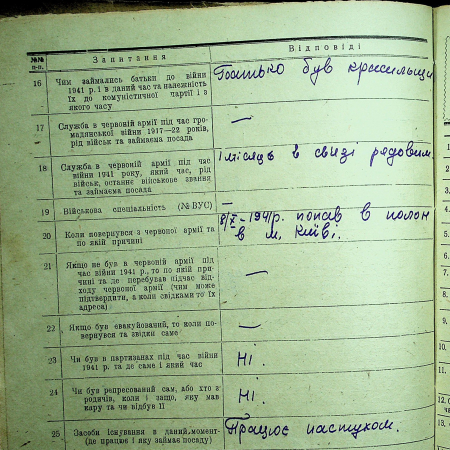 №№ п-п.
Запитання
Відповіді
16
Чим займались батьки до війни
1941 р. і в даний час та належність
їх до комуністичної партії і з
якого часу
Батько був красильщи
17
Служба в червоній армії під час гро-
мадянської війни 1917—22 років,
рід військ та займаєма посада
—
18
Служба в червоній армії під час
війни 1941 року, який час, рід
військ, останнє військове звання
та займаєма посада
1 місяць в связі рядовим
19
Військова спеціальність (№ ВУС)
—
20
Коли повернувся з червоної армії та
по якій причині
8/X - 1941р. попав в полон
в м. Київі.
21
Якщо не був в червоній армії під
час війни 1941 р., то по якій при-
чині та де перебував підчас від-
ходу червоної армії (чим може
підтвердити, а коли свідками то їх
адреса)
—
22
Якщо був евакуйований, то коли по-
вернувся та звідки саме
—
23
Чи був в партизанах під час війни
1941 р. та де саме і який час
Ні.
24
Чи був репресований сам, або хто з
родичів, коли і защо, яку мав
кару та чи відбув її
Ні.
25
Засоби існування в даний момент
(де працює і яку займає посаду)
Працює пастухом.